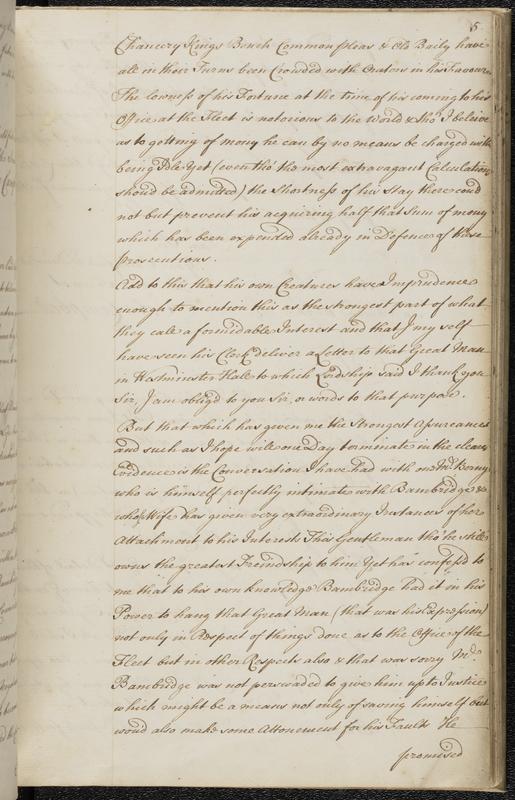 5
Chancery Kings Bench Common pleas & Old Baily have
all in their Turns been Crowded with Orators in his Favour
The lowness of his Fortune at the time of his coming to his
Office at the Fleet is notorious to the World & tho' I beleive
as to getting of mony he can by no means be charged with
being Idle Yet (even tho' the most extravagant Calculation
should be admitted) the Shortness of his Stay there coud
not but prevent his acquiring half that Sum of mony
which has been expended already in Defence of these
prosecutions.
Add to this that his own Creatures have Imprudence
enough to mention this as the strongest part of what
they call a formidable Interest and that I my self
have seen his Clerk deliver a Letter to that Great Man
in Westminster Hall to which Lordship said I thank you
Sir, I am oblig'd to you Sir, or words to that purpose.
But that which has given me the Strongest Assurances
and such as I hope will one Day terminate in the clear
Evidence is the Conversation I have had with one Mr.
who is himself perfectly intimate with Bambridge &
whose Wife has given very extraordinary Instances of her
Attachment to his Interest This Gentleman tho' he still
owns the greatest Freindship to him Yet has confess'd to
me that to his own knowledge Bambridge had it in his
Power to hang that Great Man (that was his Expression)
not only in Respect of things done as to the Office of the
Fleet but in other Respects also & that was sorry Mr.
Bambridge was not perswaded to give him up to Justice
which might be a means not only of saving himself but
woud also make some Attonement for his Faults He
promised